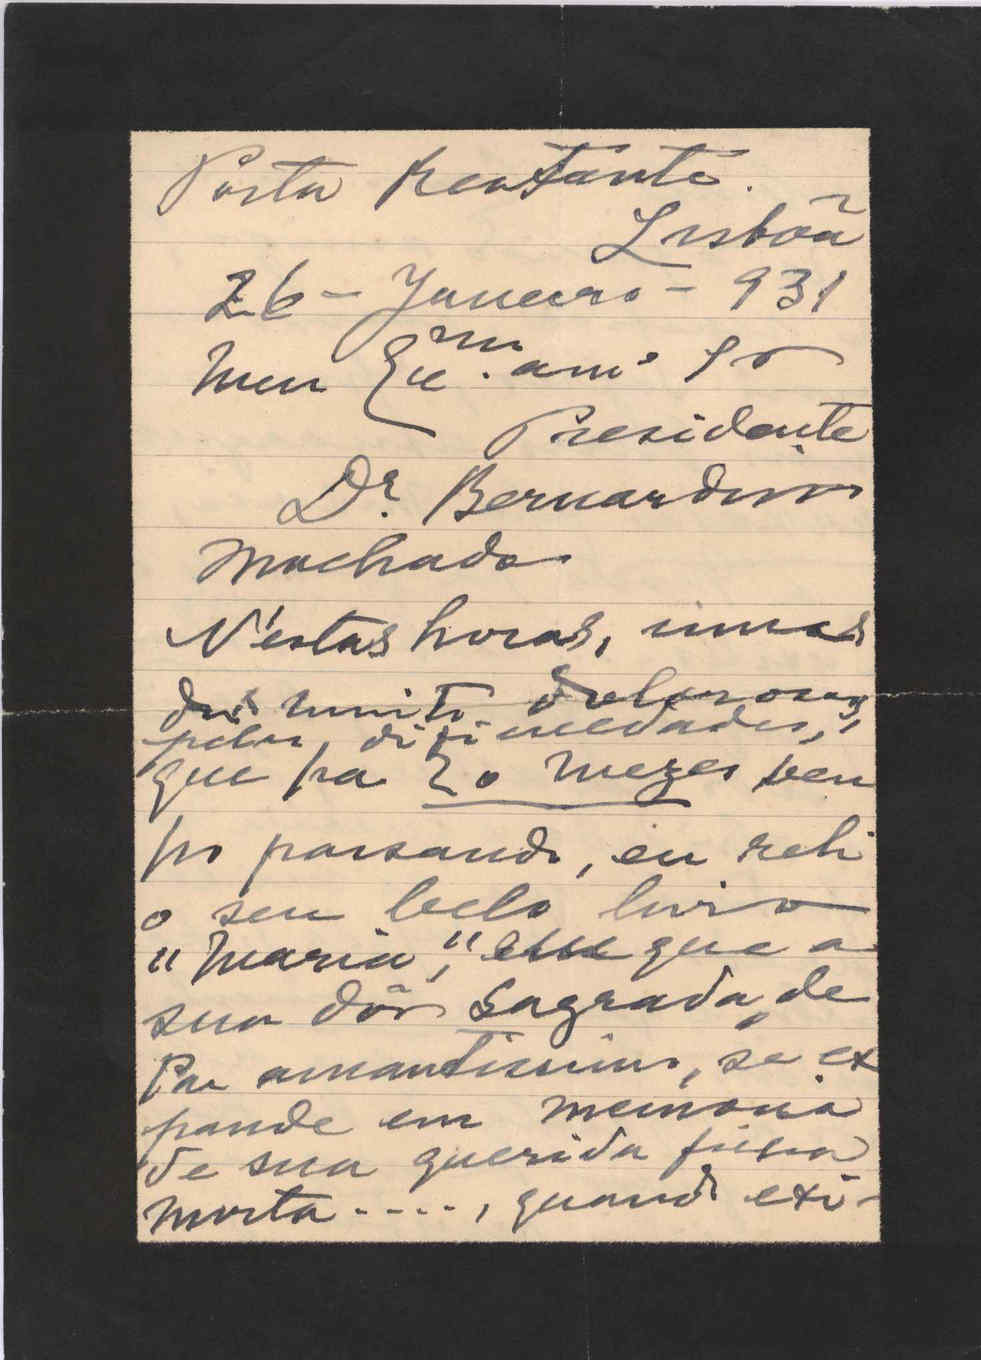 Posta Restante.
Lisbôa
26 - Janeiro - 931
Meu Exmo. amo Sr
Presidente
Dr. Bernardino
Machado
N'estas horas, umas
das muito dolorosas,
pelas
que ha 20 mezes venho
passando, eu reli
o seu belo livro
"Maria", em que a
sua dôr sagrada, de
Pae amantissimo, se ex
pande em memoria
de sua querida filha
morta ...., quando exi-